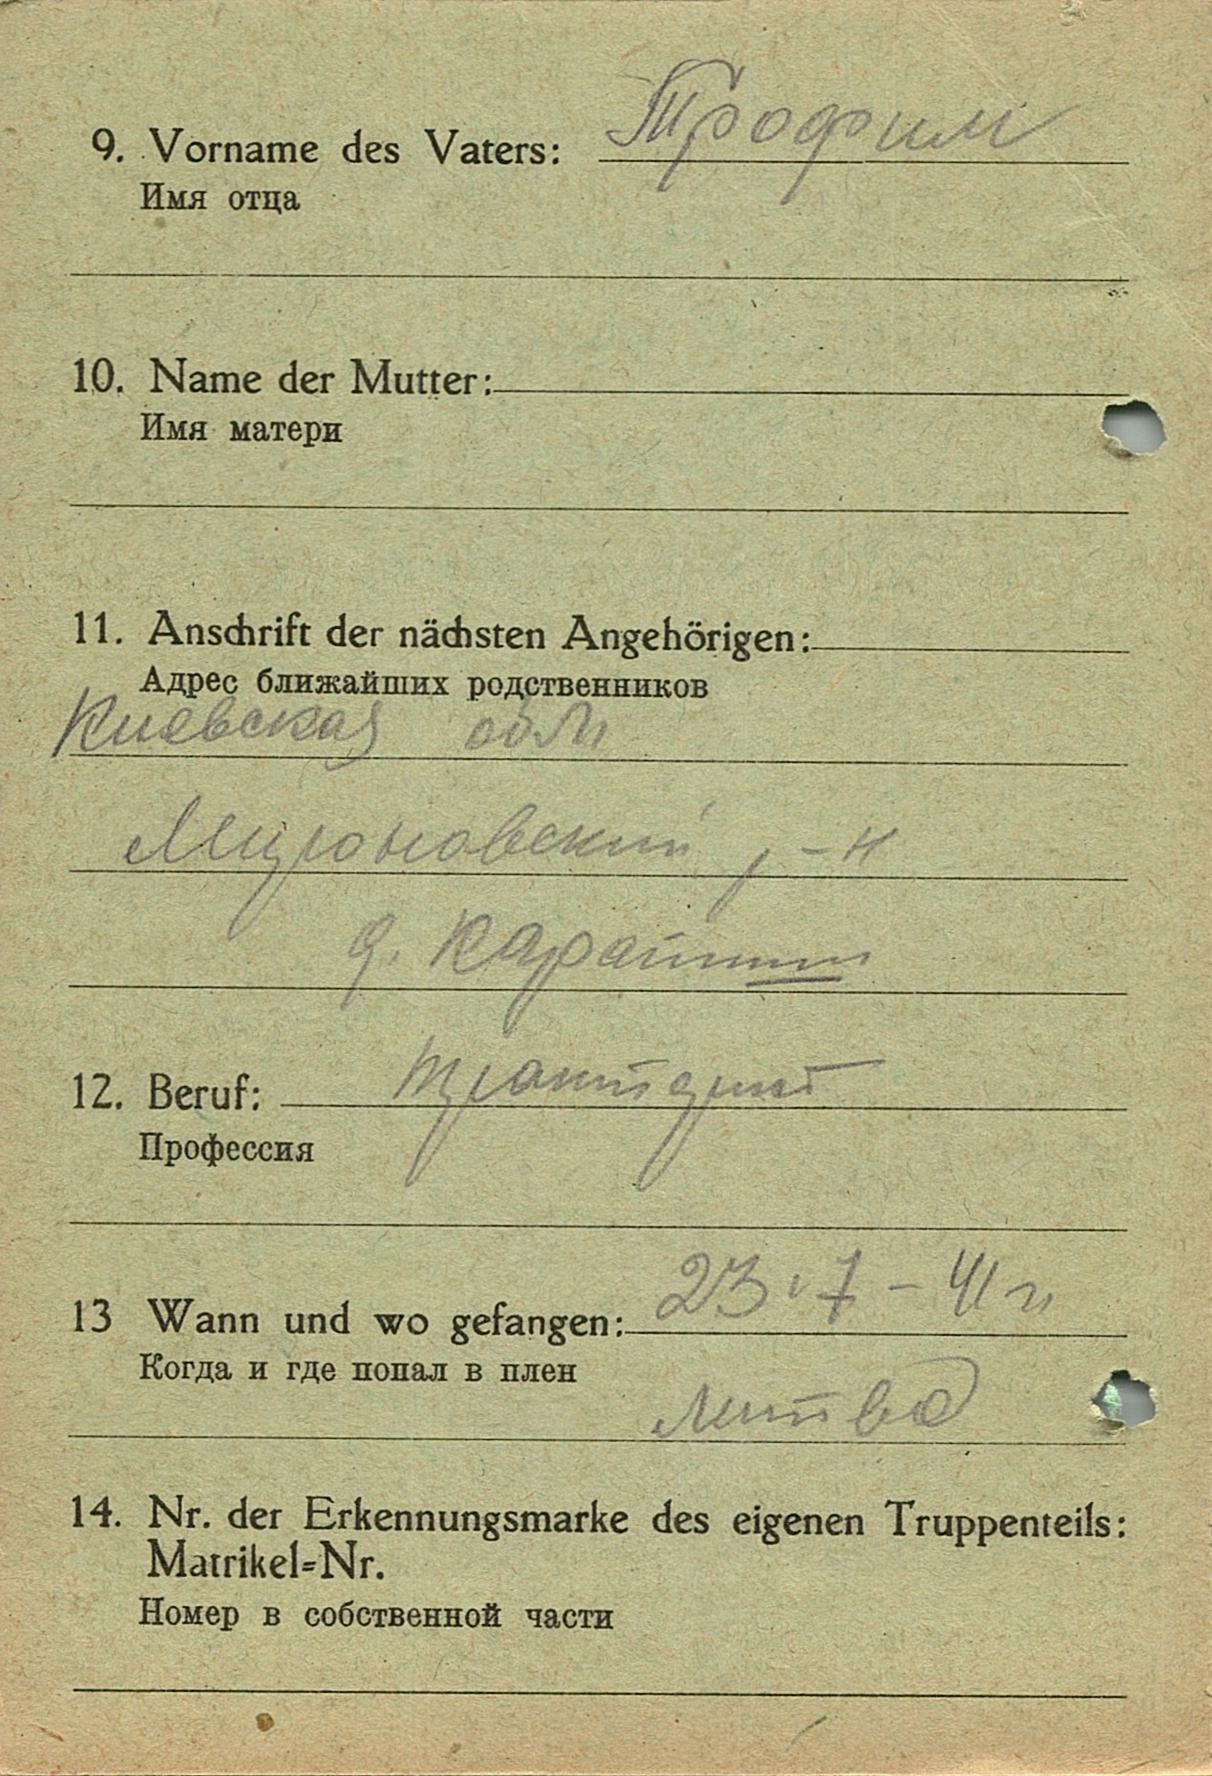 9. Vorname des Vaters: Трофим
Имя отца
10. Name der Mutter:
Имя матери
11. Anschrift der nächsten Angehörigen:
Адрес ближайших родственников
Киевская обл
Мироновский р-н
д.
12. Beruf:
Профессия
13 Wann und wo gefangen: 23.7-41 г.
Когда и где попал в плен
Литва
14. Nr. der Erkennungsmarke des eigenen Truppenteils:
Matrikel=Nr.
Номер в собственной части